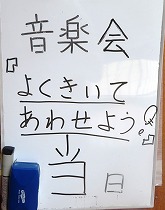 音楽会
よくきいて
あわせよう
当日